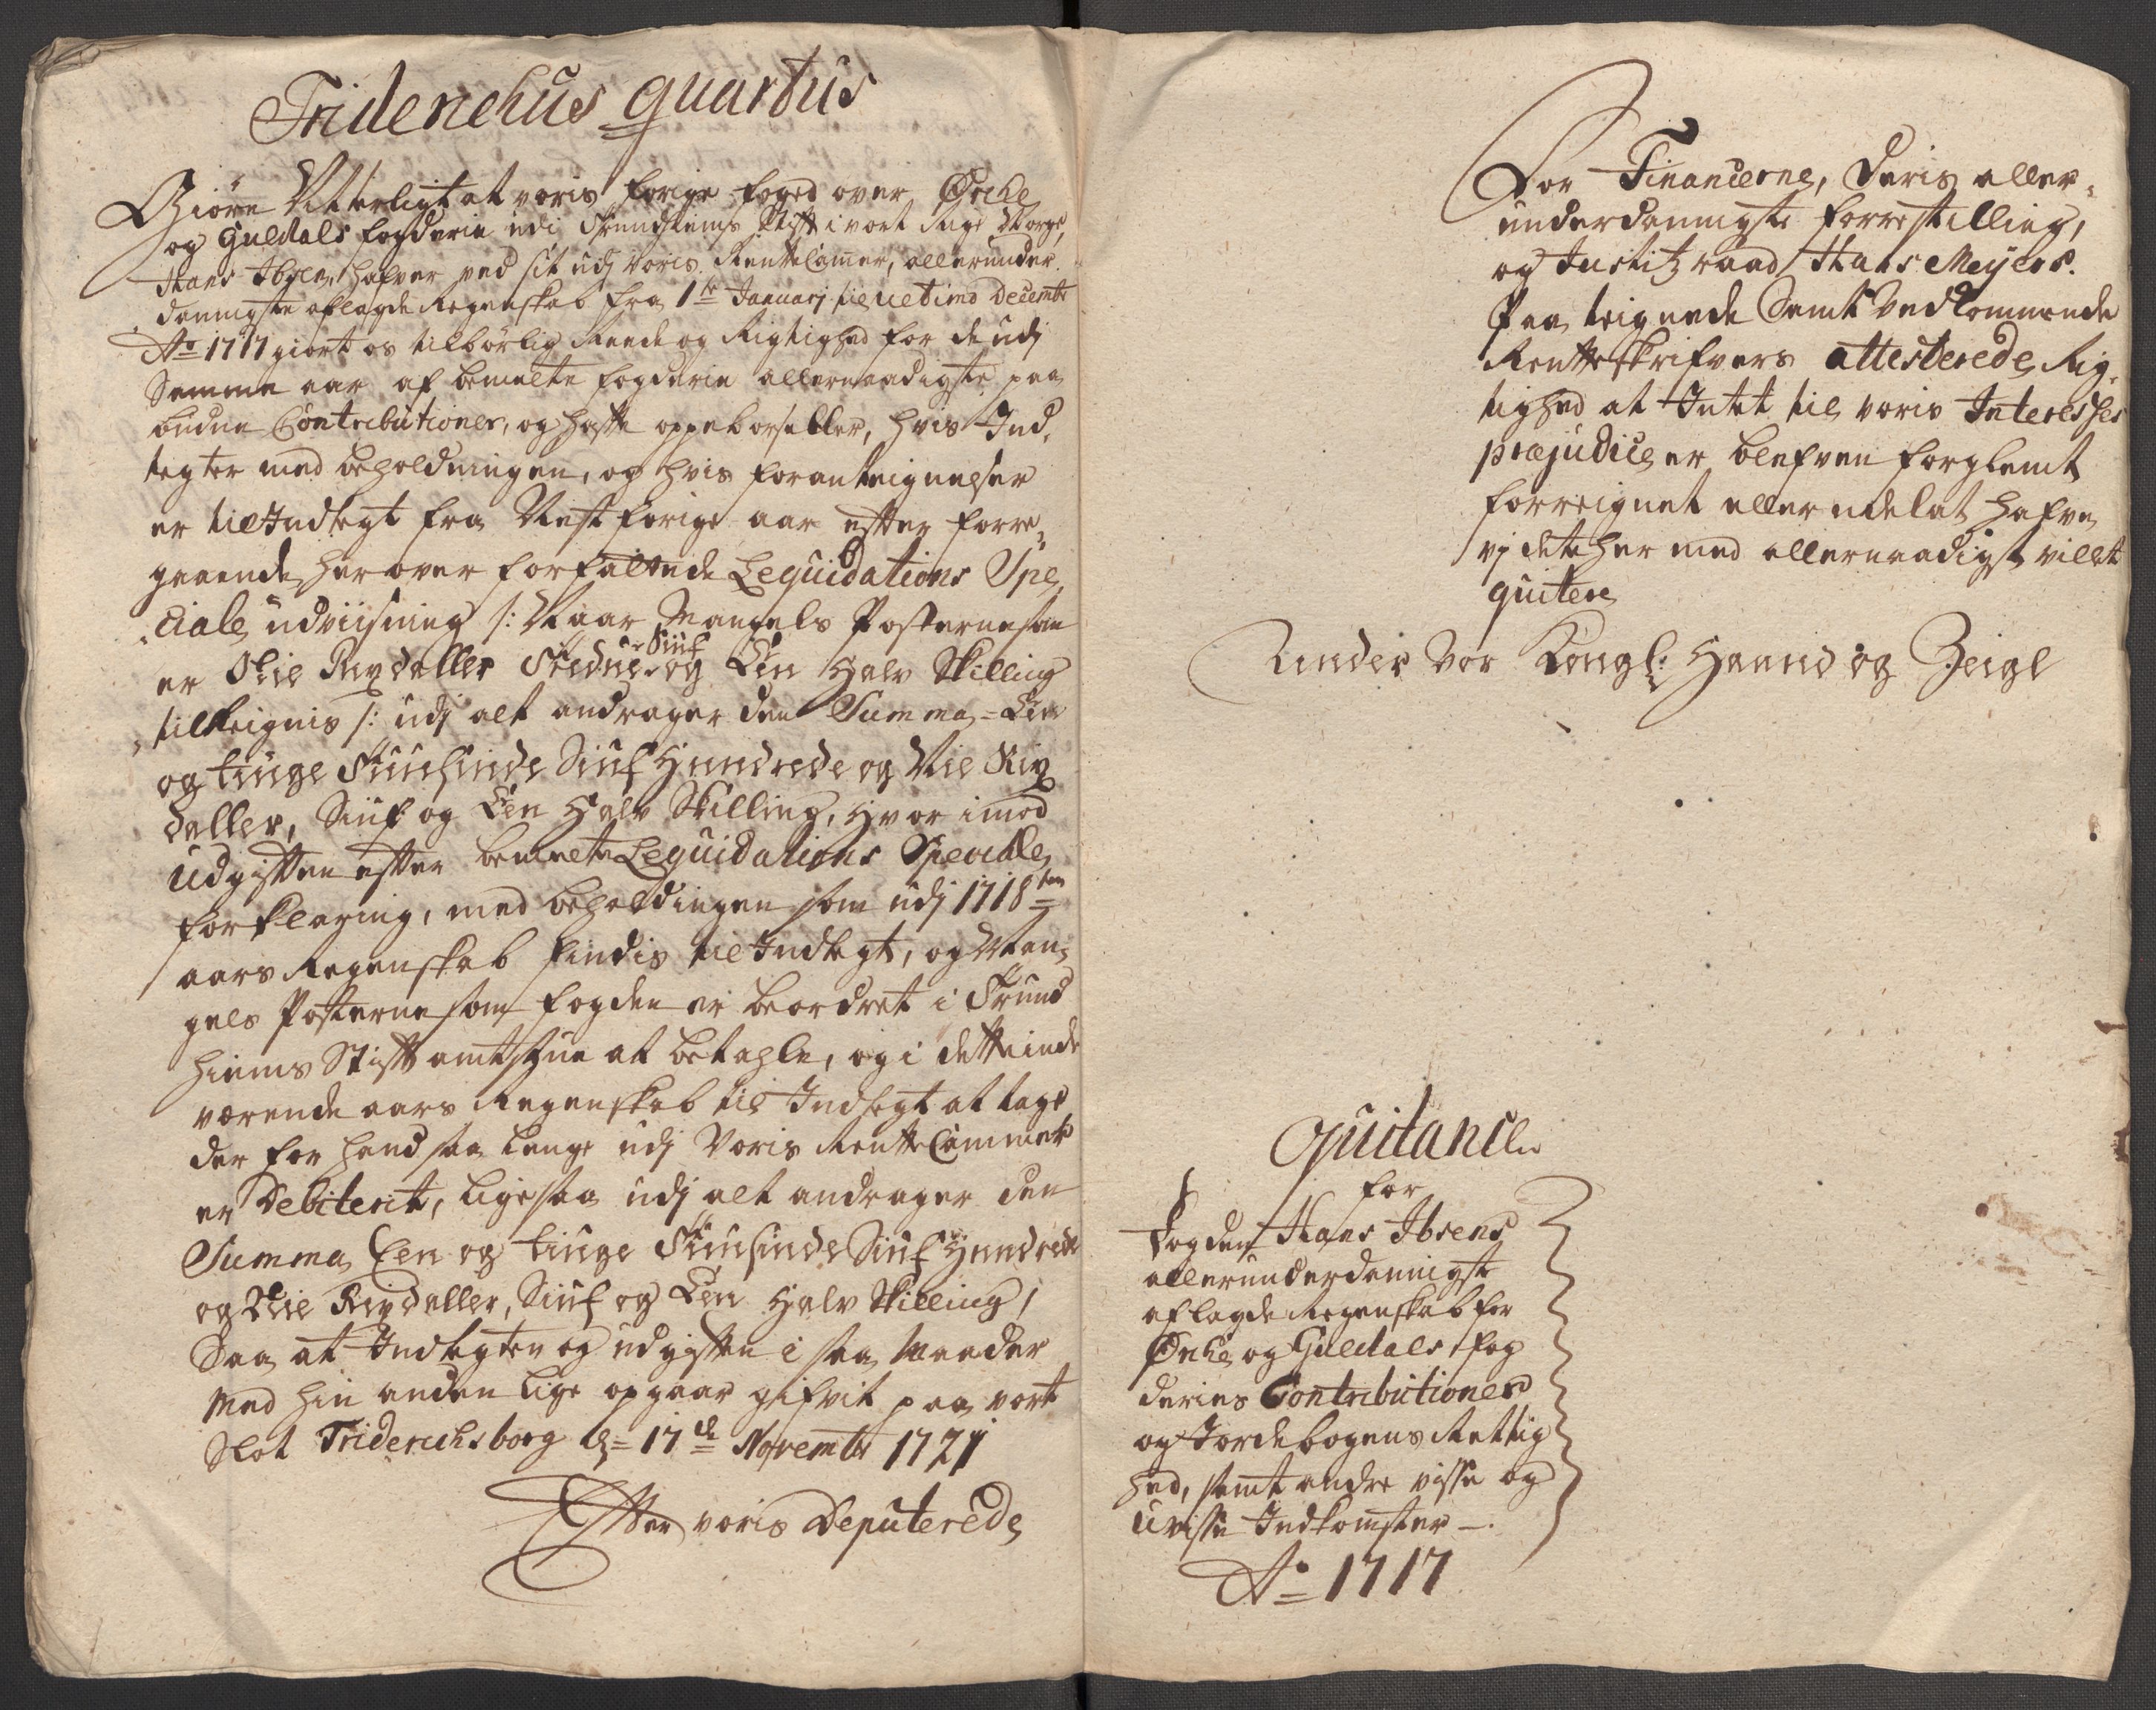 Friderichus quartus
Giöre Vitterligt at voris forige foged over Örche
og Guldals fogderie udi Trundhiems Stift i vort Rige Norge,
Hans Ibsen, hafver ved sit udj voris RenteCammer, allerunder-
danigste aflagde Regenskab fra 1te Januarj til ultimo Decembr
Ao 1717 giort os tilbörlig Reede og Rigtighed for de udj
Samme aar af bemelte fogderie allernaadigste paa
budne Contributioner, og hafte oppeborseller, hvis Ind,
tegter med beholdningen, og hvis foranteignelser
er til Indtegt fra Nest forige aar efter forre,
gaaende her over forfattede Lequidations Spe,
ciale udviisning /: Naar Mangels Posterne som
er Otte Rixdaller Siuf
og Een Halv Skilling
tilteignis /: udj alt andrager den Summa = Een
og tiuge Tuusinde Siuf Hundrede og Nie Rix
daller, Siuf og Een Halv Skilling, Hvor imod
udgiften efter bemelte Lequidations Speciale
forklaring, med beholdingen som udj 1718ten
aars Regenskab findis til Indtegt, og Man,
gels Posterne som fogden er beordret i Trund
hiems Stift amtstue at betahle, og i dette inde
værende aars Regenskab til Indtegt at tage
der for hand saa lenge udj Voris RenteCammer
er Debiterit, ligesaa udj alt andrager den
Summa Een og tiuge Tuusinde Siuf Hundrede
og Nie Rixdaller, Siuf og Een Halv Skilling,
Saa at Indtegten og udgiften i saa Maader
Med hin anden lige opgaar gifvit paa vort
Slot Friderichsborg d = 17de Novembr 1721
Efter voris Deputerede
For Financerne, deris aller,
underdanigste forrestilling,
og Justitz raad Hans Meyers
Paa teignede Samt Vedkommende
Rentteskrifvers attesterede Rig,
tighed at Intet til voris Interesses
præjudice er blefven forglemt
forreignet eller udelat hafve
vj dete her med allernaadigst villet
quitere
Under Vor Kongl: Haand og Zeigl
Quitance
for
Fogden Hans Ibsens
allerunderdanigste
aflagde Regenskab for
Örche og Guldals fog
deries Contributioner
og Jordebogens Rettig
hed, samt andre visse og
uvisse Indkomster
Ao 1717